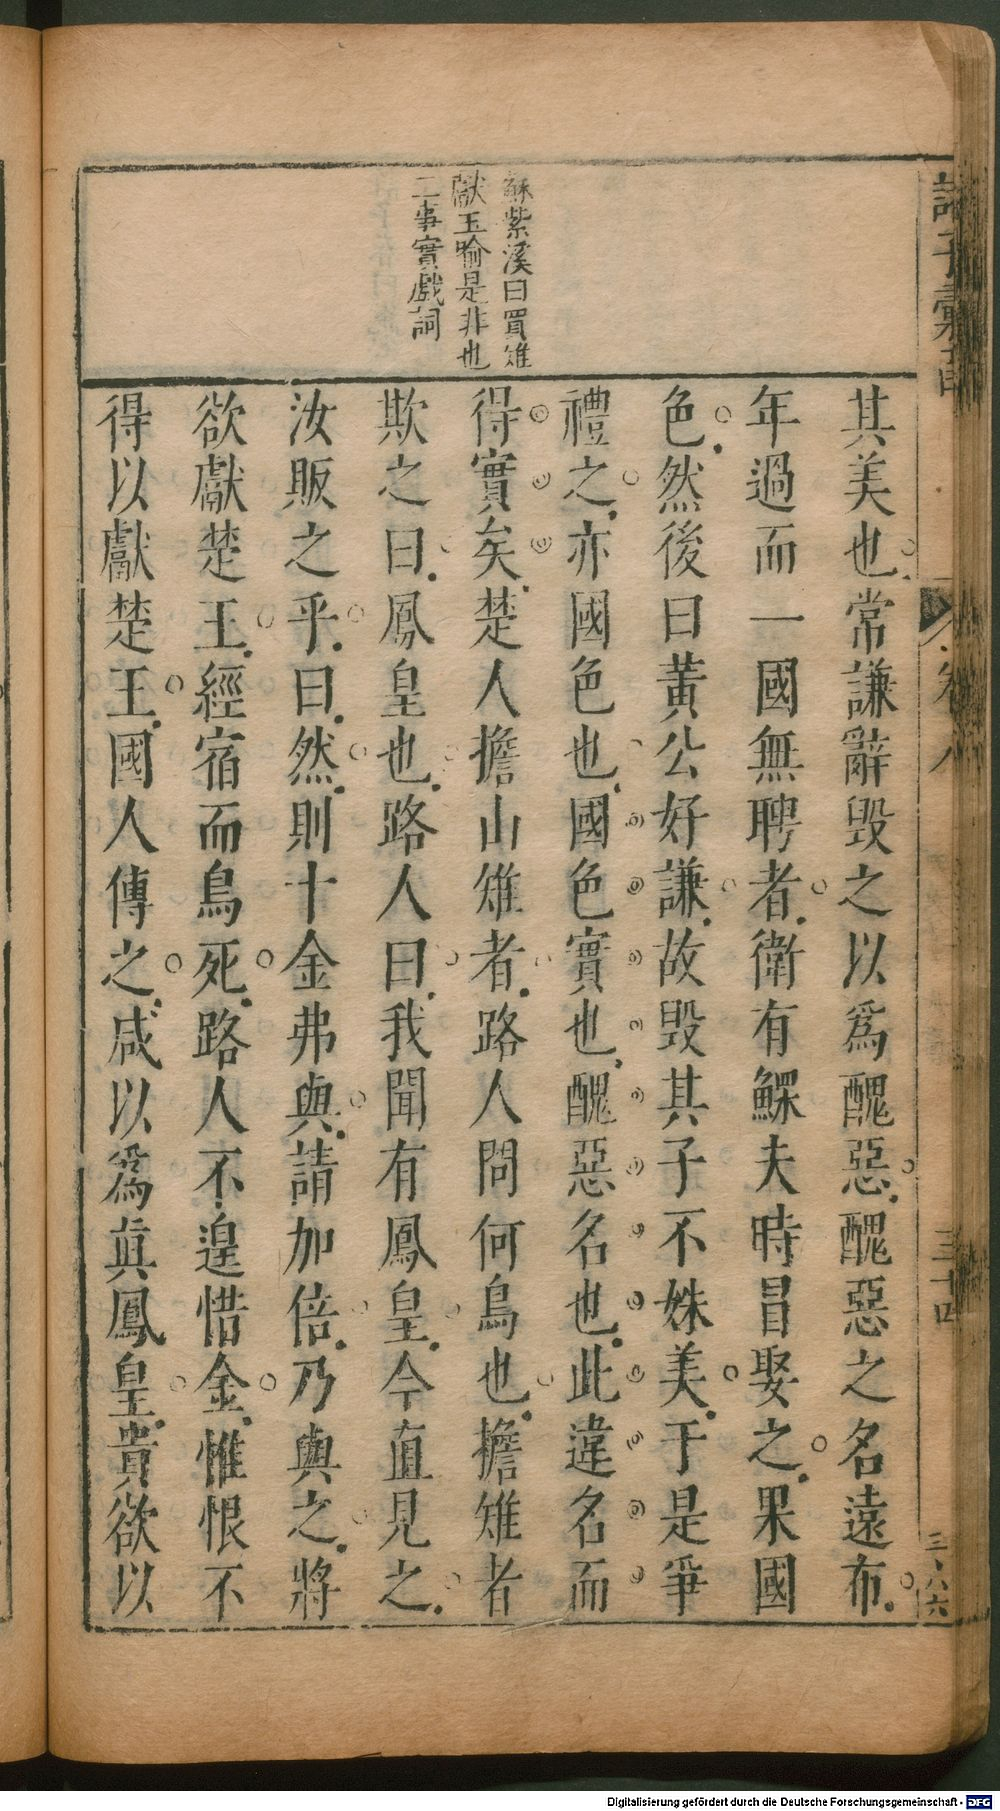 蘇紫溪曰買雉
獻玉喻是非也
二事實戲詞
其美也常謙辭毀之以爲醜惡醜惡之名遠布
年過而一國無聘者衛有鰥夫時冒娶之果國
色然後曰黃公好謙故毀其子不姝美于是爭
禮之亦國色也國色實也醜惡名也此違名而
得實矣楚人擔山雉者路人問何鳥也擔雉者
欺之曰鳳皇也路人曰我聞有鳳皇今直見之
汝販之乎曰然則十金弗與請加倍乃與之將
欲獻楚王經宿而鳥死路人不遑惜金惟恨不
得以獻楚王國人傳之咸以爲真鳳皇貴欲以
卷八
三十四
Digitalisierung gefördert durch die Deutsche Forschungsgemeinschaft - DFG